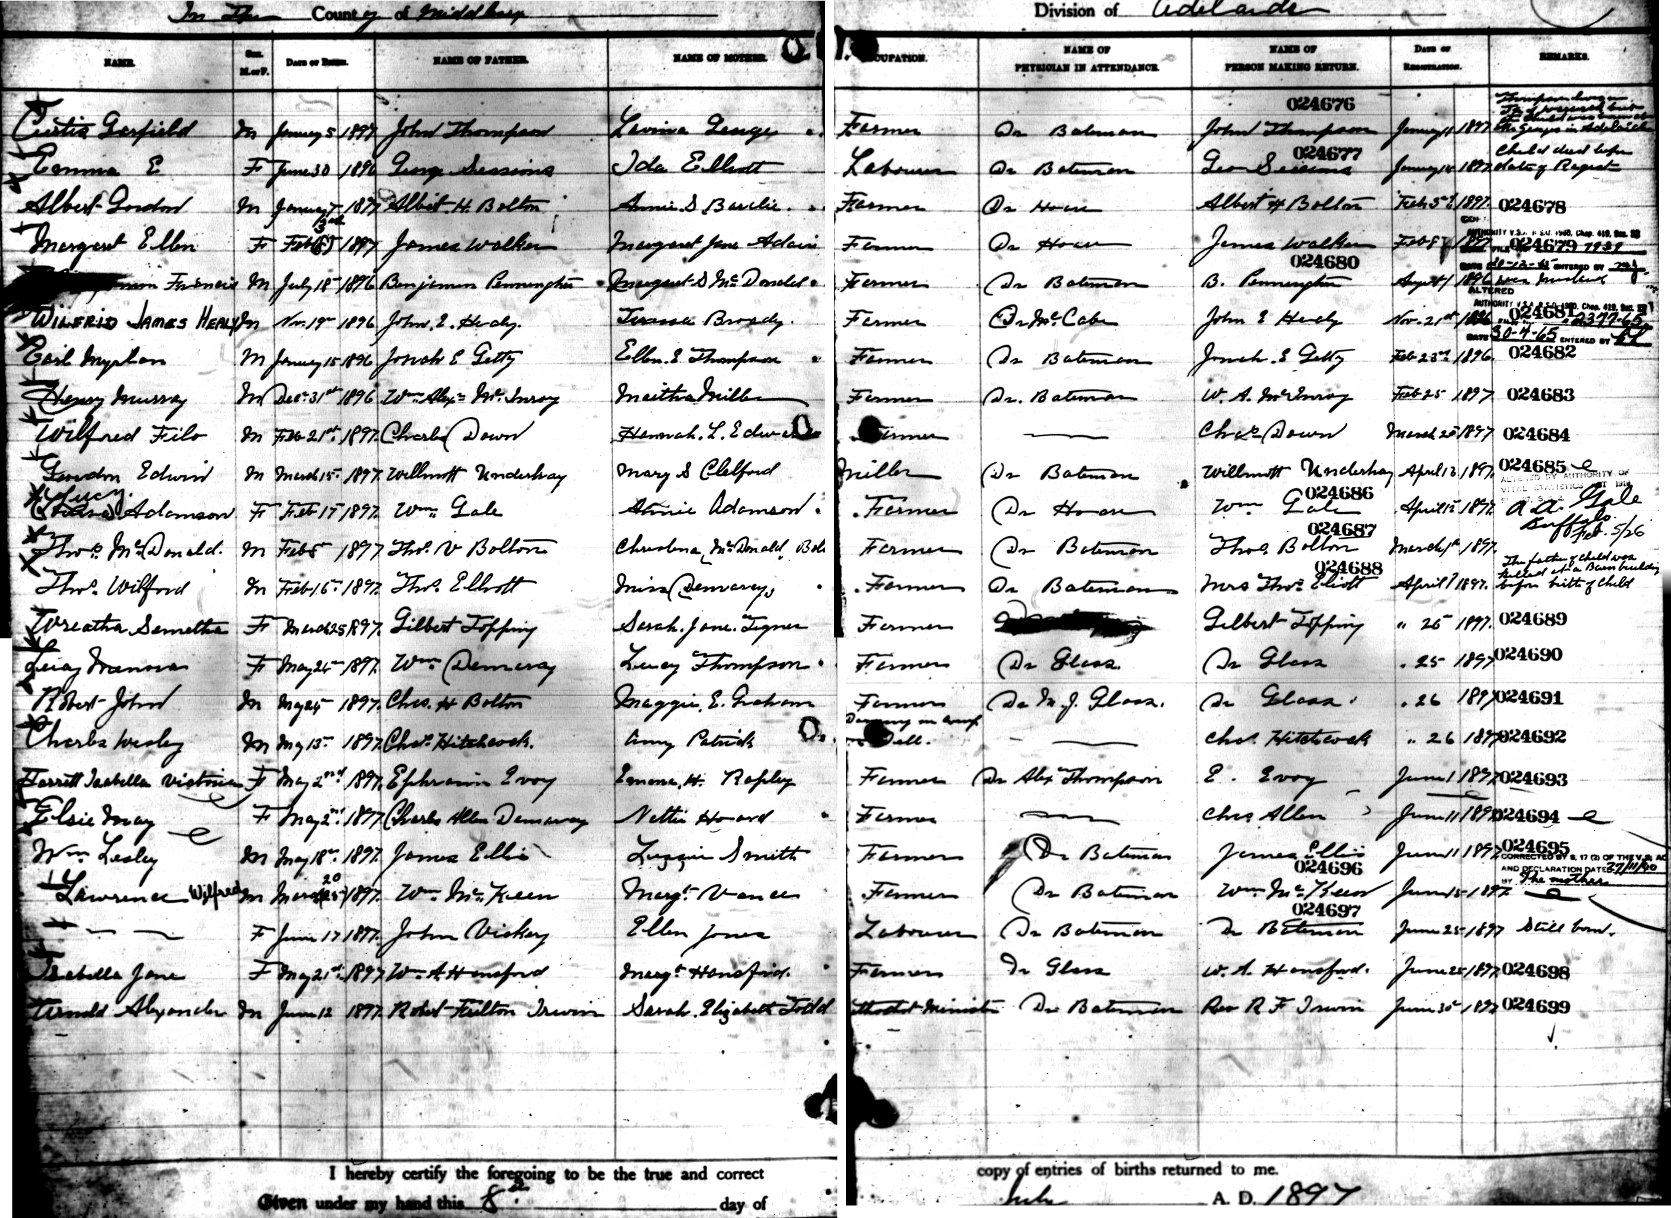 In The County of Middlesex Division of Adelaide
NAME. SEX. M. or F. DATE OF BIRTH. NAME OF FATHER. NAME OF MOTHER. OCCUPATION. NAME OF PHYSICIAN IN ATTENDANCE. NAME OF PERSON MAKING RETURN. DATE OF REGISTRATION. REMARKS.
024676
Curtis Garfield M January 5 1897 John Thompson Lavina Farmer Dr Bateman John Thompson January 1897 Child was born at in Adelaide
024677
Emma E F June 30 1896 George Sessions Ida Elliott Labourer Dr Bateman Geo Sessions January 14 1897 Child died before date of Regist
Albert Gordon M January 7 1897 Albert H. Bolton Annie S. Farmer Dr Albert H Bolton Feb 5th 1897 024678
Margaret Ellen F Feb 3rd 1897 James Walker Margaret Jane Adair Farmer Dr James Walker Feb 1897 024679
024680
Francis M July 18 1896 Benjamin Pennington Margaret S McDonald Farmer Dr Bateman B. Pennington Aug 1896
ALTERED
WILFRID JAMES HEALY M Nov. 19 1896 John. E. Healy. Teresa Brady. Farmer Dr McCabe John E Healy Nov. 21st 1896 024681 2377-65
DATE 30-4-65 ENTERED BY
Earl M January 15 1896 Jonah E Getty Ellen. E Thompson Farmer Dr Bateman Jonah. E Getty Feb 23rd 1896. 024682
Henry Murray M Dec. 31st 1896 Wm. Alex. McInroy Martha Miller Farmer Dr. Bateman W. A. McInroy Feb 25 1897 024683
Wilfred Filo M Feb 21st 1897 Charles Down Hannah. L. Farmer Chas Down March 1897 024684
Edwin M March 15 1897 Willmott Underhay Mary S Miller Dr Bateman Willmott Underhay April 1897 024685
024686
Lucy Adamson F Feb 17 1897. Wm. Gale Adamson Farmer Dr Wm Gale April 1897 Gale Buffalo Feb. 5/26
024687
Thos. McDonald. M Feb 1897 Thos. V Bolton Christina McDonald Farmer Dr Bateman Thos. Bolton March 1897
024688
Thos. Wilford M Feb 15 1897. Thos. Elliott Miss Demaray Farmer Dr Bateman Mrs Thos. Eliott April 1897. The father of child was killed at a Barn building before birth of child
Wreatha Sametha F March 25 1897. Gilbert Topping Sarah. Jane. Farmer Gilbert Topping " 25 1897. 024689
F May 1897 Wm. Demaray Lucy Thompson Farmer Dr Glass Dr Glass " 25 1897 024690
Robert John M May 1897. Chas. H Bolton Maggie. E. Graham Farmer Dr M. J. Glass. Dr Glass " 26 1897 024691
Charles Wesley M May 13 1897 Chas. Hitchcock. Amy Patrick Chas. Hitchcock " 26 1897 024692
Isabella Victoria F May 2nd 1897. Ephraim Evoy Emma. H. Rapley Farmer Dr Alex Thompson E. Evoy June 1 1897 024693
Elsie May F May 2nd 1897 Charles Allen Demaray Nettie Howard Farmer Chas Allen June 11 1897 024694
Wm. Lesley M May 18 1897. James Ellis Lizzie Smith Farmer Dr Bateman James Ellis June 11 1897 024695
024696
Lawrence Wilfred M March 20 1897. Wm. McKeen Margt Vance Farmer Dr Bateman Wm. McKeen June 15 1897 CORRECTED BY S. 17 (2) OF THE V.S. AC AND DECLARATION DATED 27/11/40 BY The mother
024697
F June 17 1897. John Vickery Ellen Jones Labourer Dr Bateman Dr Bateman June 25 1897 Still born.
Isabella Jane F May 21st 1897 Wm. A Hansford Margt Hansford. Farmer Dr Glass W. A. Hansford. June 25 1897 024698
Arnold Alexander M June 12 1897. Robert Fulton Irwin Sarah. Elizabeth Todd Methodist Minister Dr Bateman Rev R F Irwin June 30 1897 024699
I hereby certify the foregoing to be the true and correct copy of entries of births returned to me.
Given under my hand this 8th day of July A. D. 1897